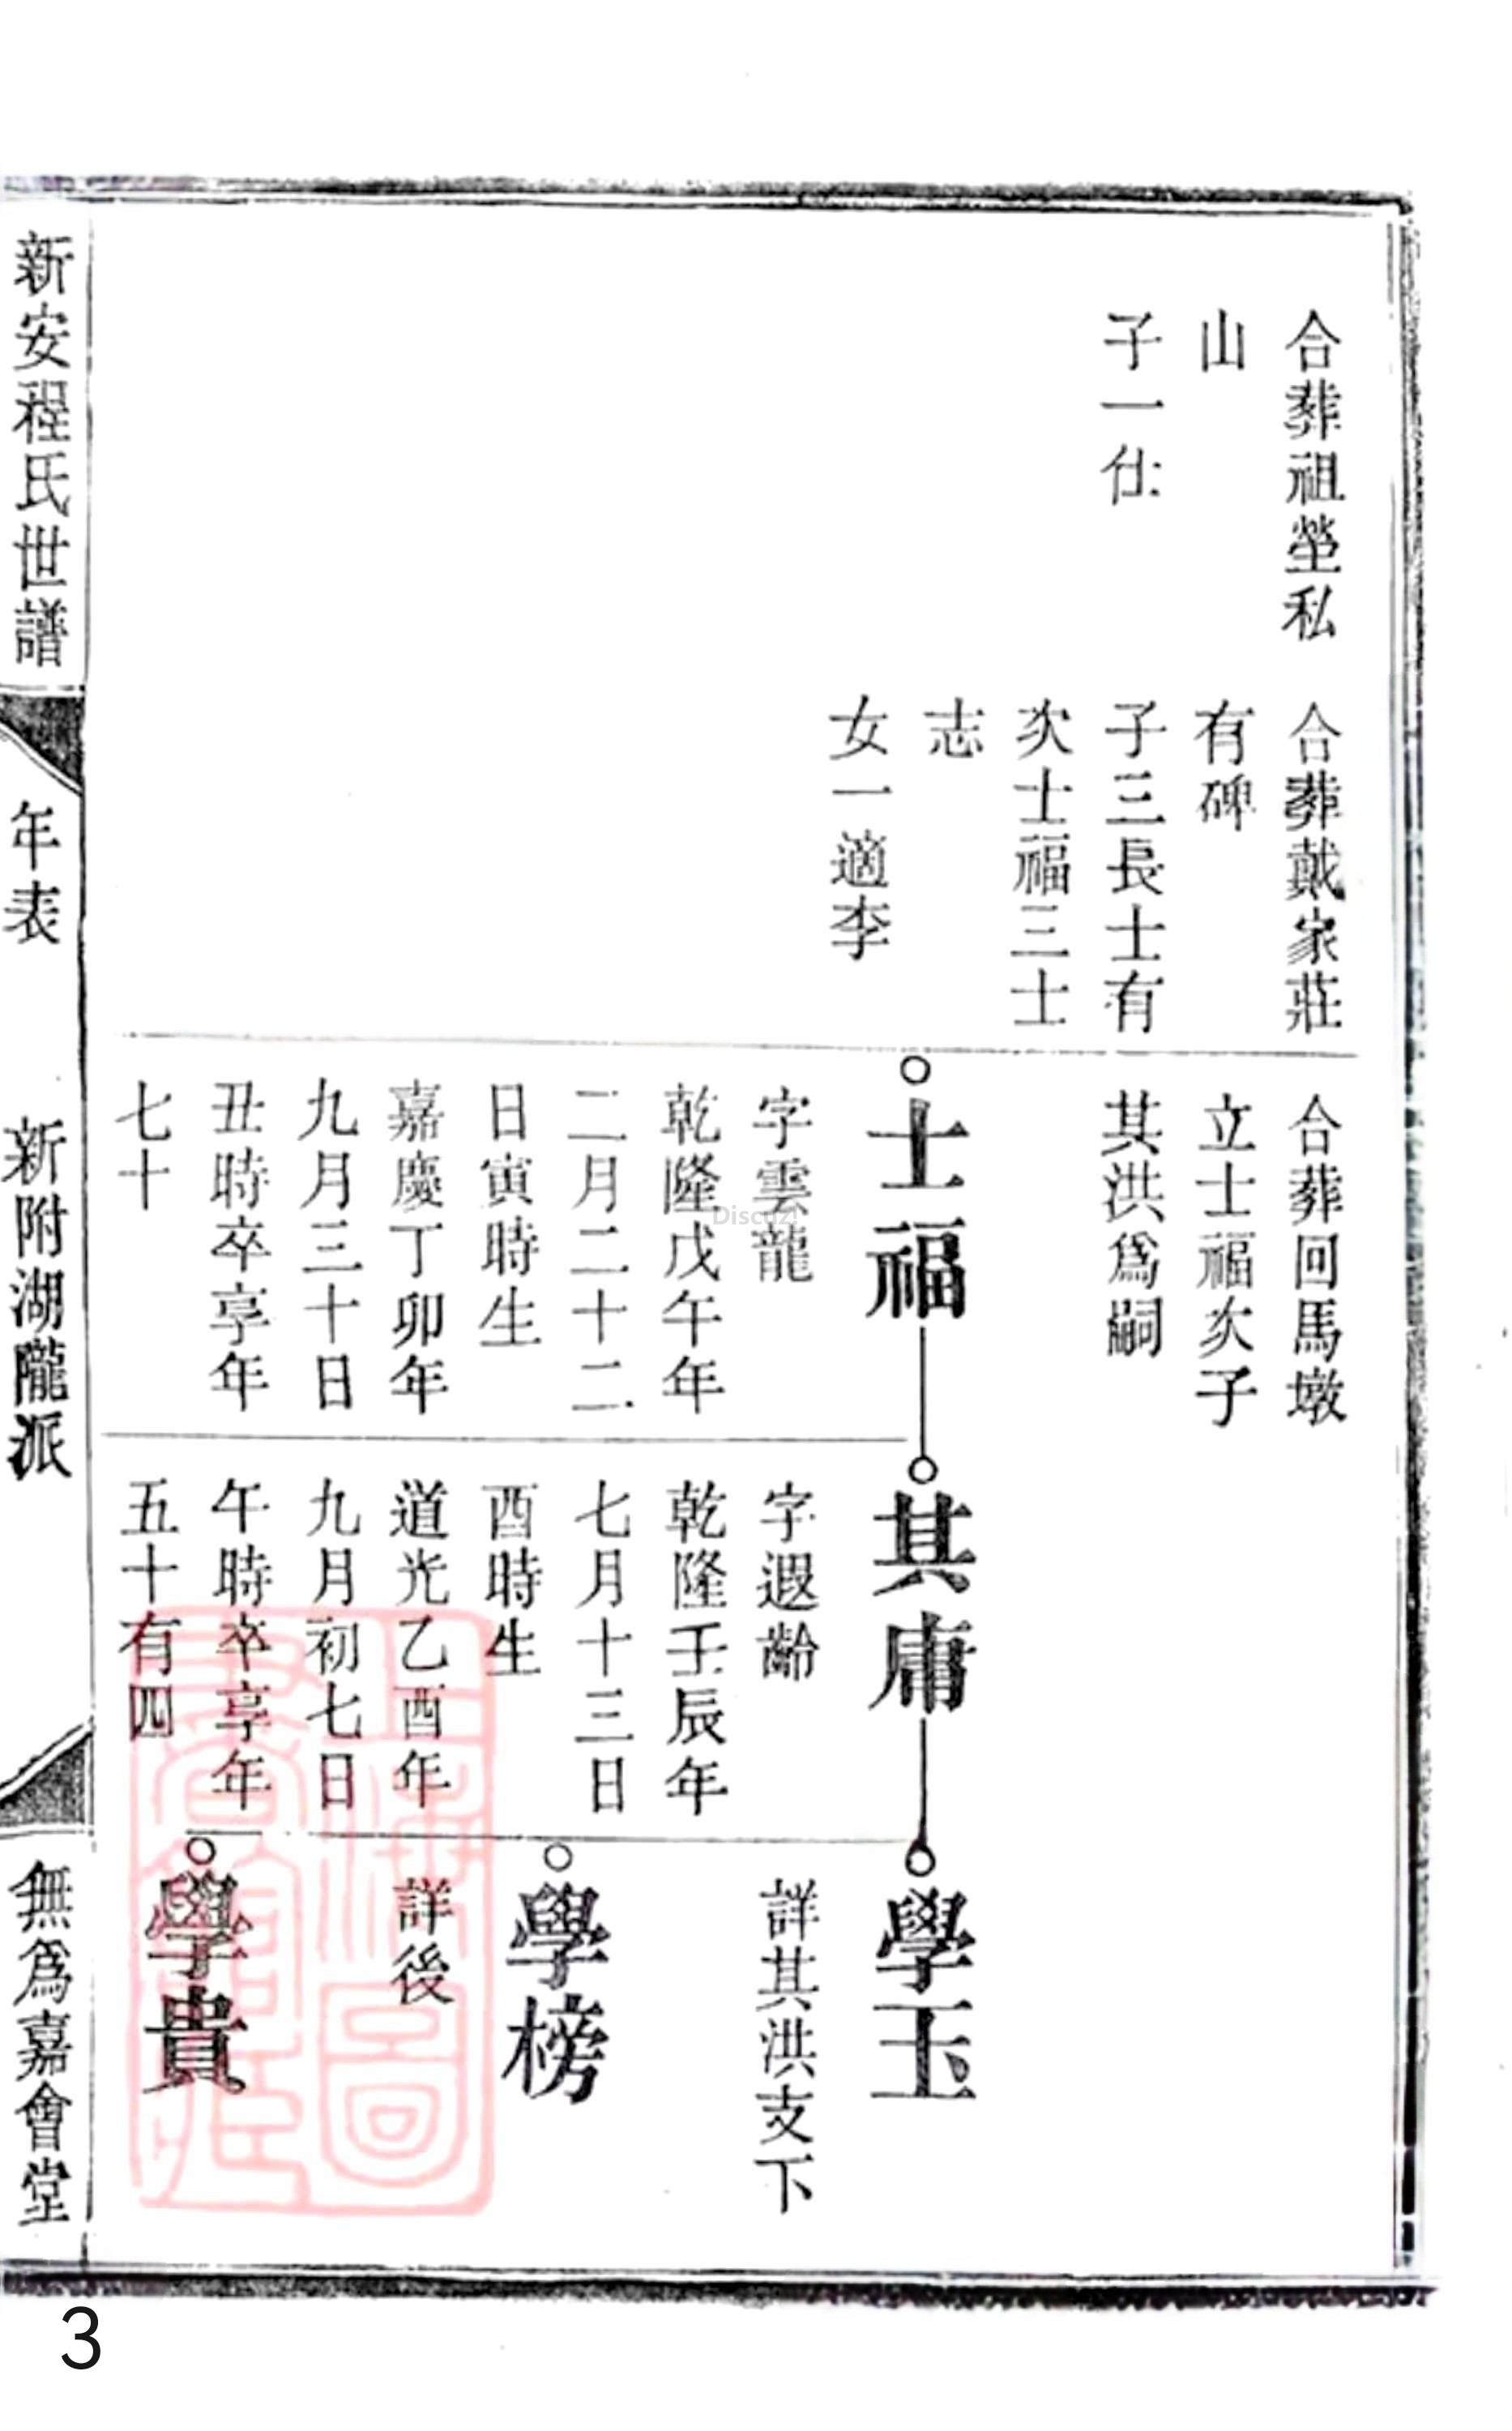 合葬祖塋私
山
子一仕
合葬戴家莊
有碑
子三長士有
次士福三士
志
女一適李
合葬回馬墩
立士福次子
其洪爲嗣
士福
字雲龍
乾隆戊午年
二月二十二
日寅時生
嘉慶丁卯年
九月三十日
丑時卒享年
七十
其庸
字遐齡
乾隆壬辰年
七月十三日
酉時生
道光乙酉年
九月初七日
午時卒享年
五十有四
學玉
詳其洪支下
學榜
詳後
學貴
新安程氏世譜
年表
新附湖隴派
無爲嘉會堂
上海圖書館藏
Discuz!
3